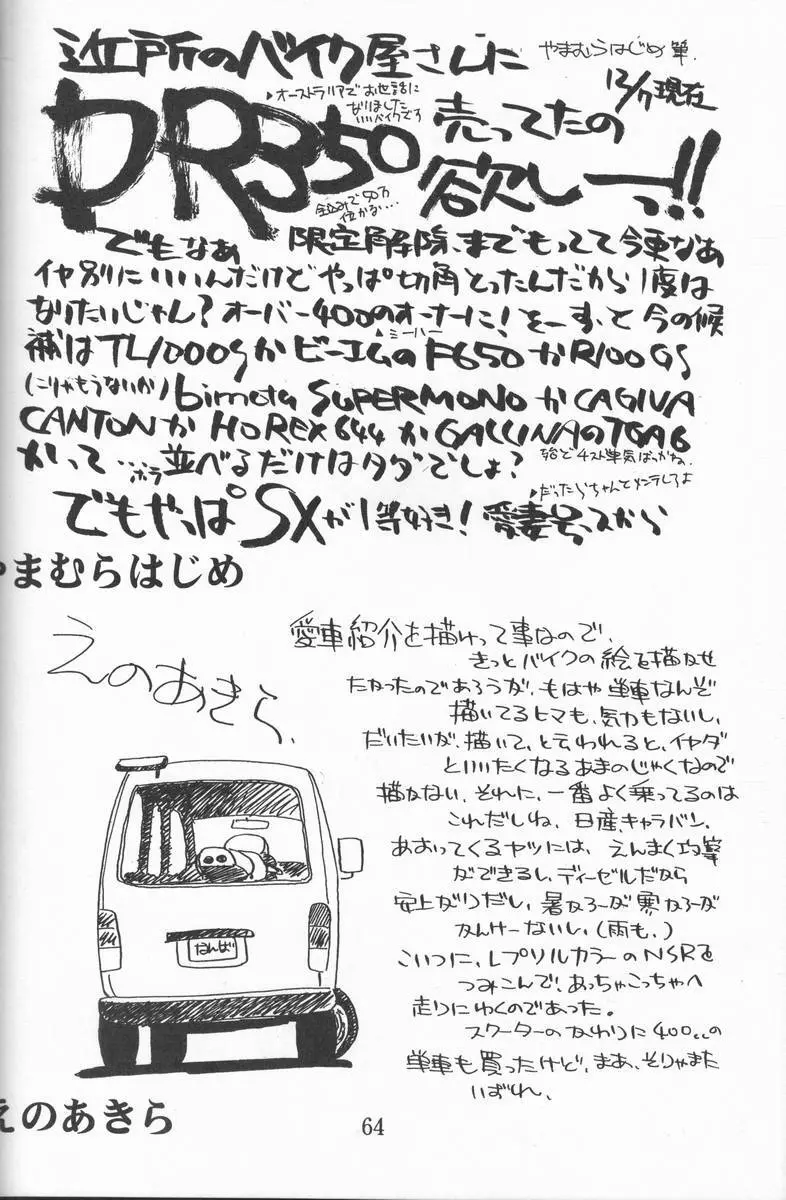 近所のバイク屋さんに
やまむらはじめ 筆.
12/17現在
▸オーストラリアでお世話に
なりました
いいバイクです
DR350売ってたの
欲しーっ!!
全込みで50万
位かな…
でもなぁ 限定解除、までもってて今更なぁ
イヤ別にいいんだけどやっぱ切角とったんだから1度は
なりたいじゃん?オーバー400のオーナーに!をーすっと今の候
補はTL1000SかビーエムのF650かR100GS
▴ミーハー
(こりゃもうないか)bimota SUPERMONOかCAGIVA
CANYONかHOREX644かGALLINAのTGA6
かって…ホラ並べるだけはタダでしょ?
でもやっぱSXが1等好き!愛妻号っスから
▸だったらちゃんとメンテしろよ
やまむらはじめ
えのあきら、
愛車紹介を描けって事なので、
きっとバイクの絵を描かせ
たかったのであろうが、もはや単車なんぞ
描いてるヒマも、気力もないし、
だいたいが、描いて、と云われると、イヤダ
といいたくなるあまのじゃくなので
描かない、それに、一番よく乗ってるのは
これだしね、日産、キャラバン、
あおってくるヤツには、えんまく攻撃
ができるし、ディーゼルだから
安上がりだし、暑かろーが寒かろーが
かんけーないし、(雨も、)
こいつに、レプソルカラーのNSRを
つみこんで、あっちゃこっちゃへ
走りにゆくのであった。
スクーターのかわりに400ccの
単車も買ったけど、まあ、そりゃまた
いずれ、
なんば
えのあきら
64